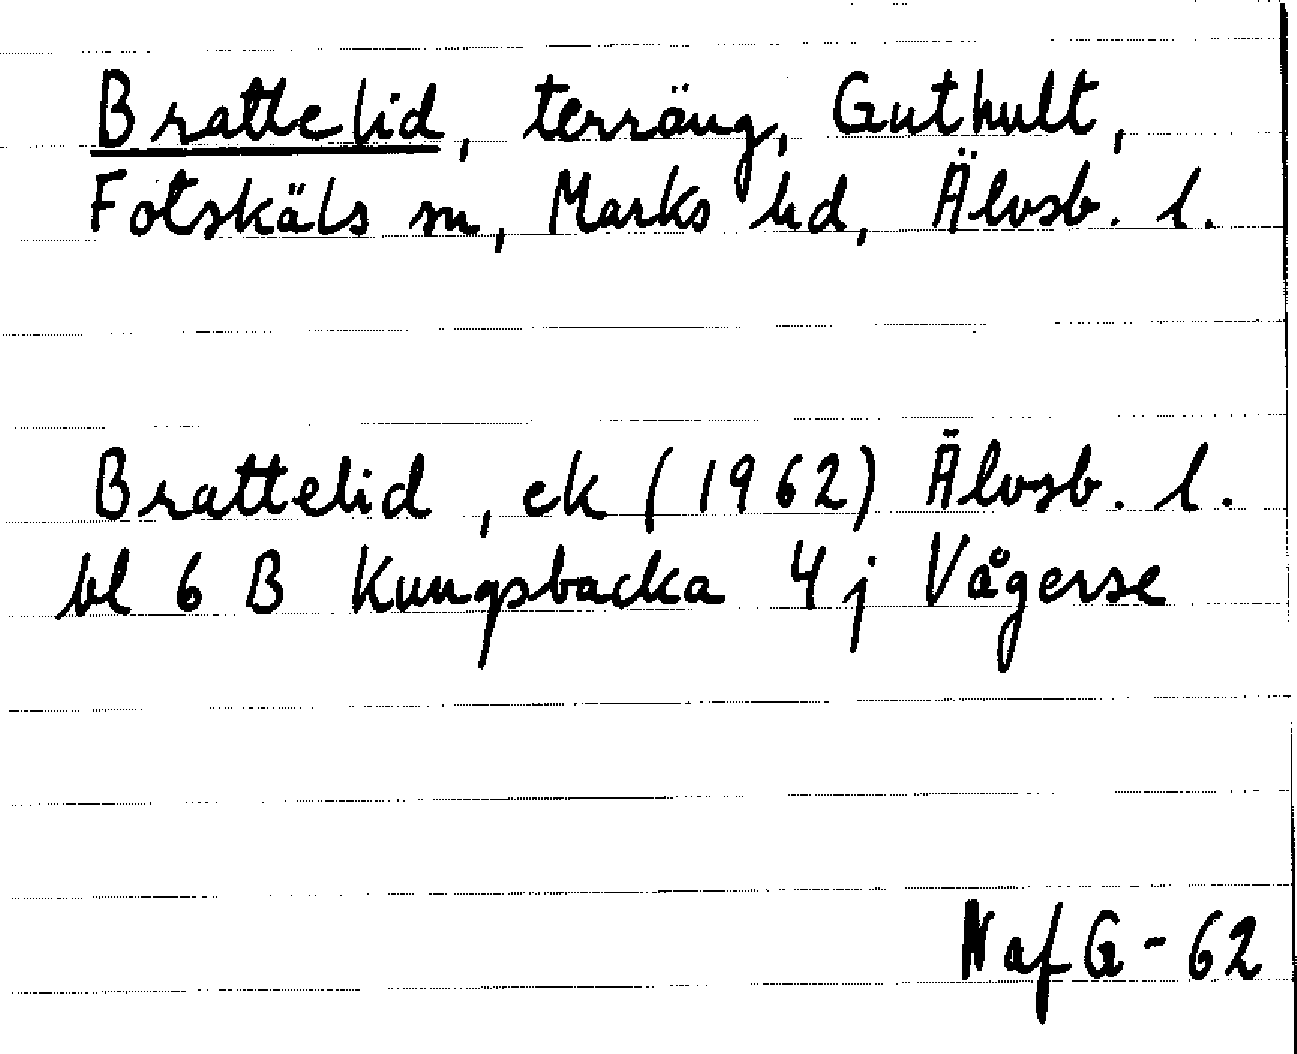 Brattelid, terräng, Guthult,
Fotskäls sn, Marks hd, Älvsb. l.
Brattelid, ek (1962) Älvsb. l.
bl 6 B Kungsbacka 4 j Vågerse
N af G-62